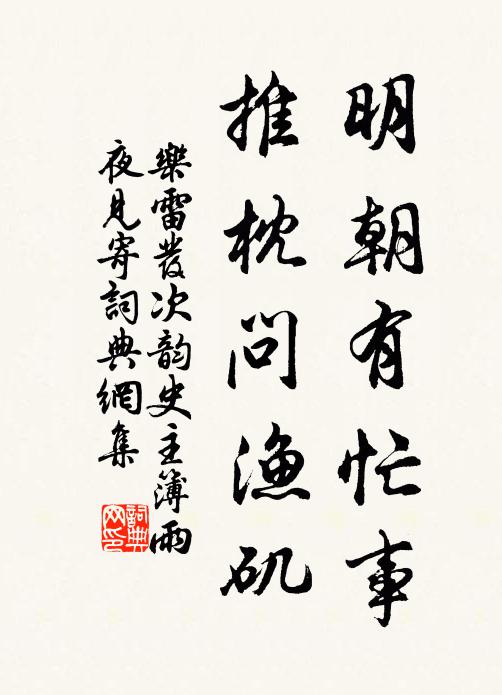 明朝有忙事
推枕问漁矶
樂雷發次韵史主簿雨
夜見寄詞典網集
詞典网印